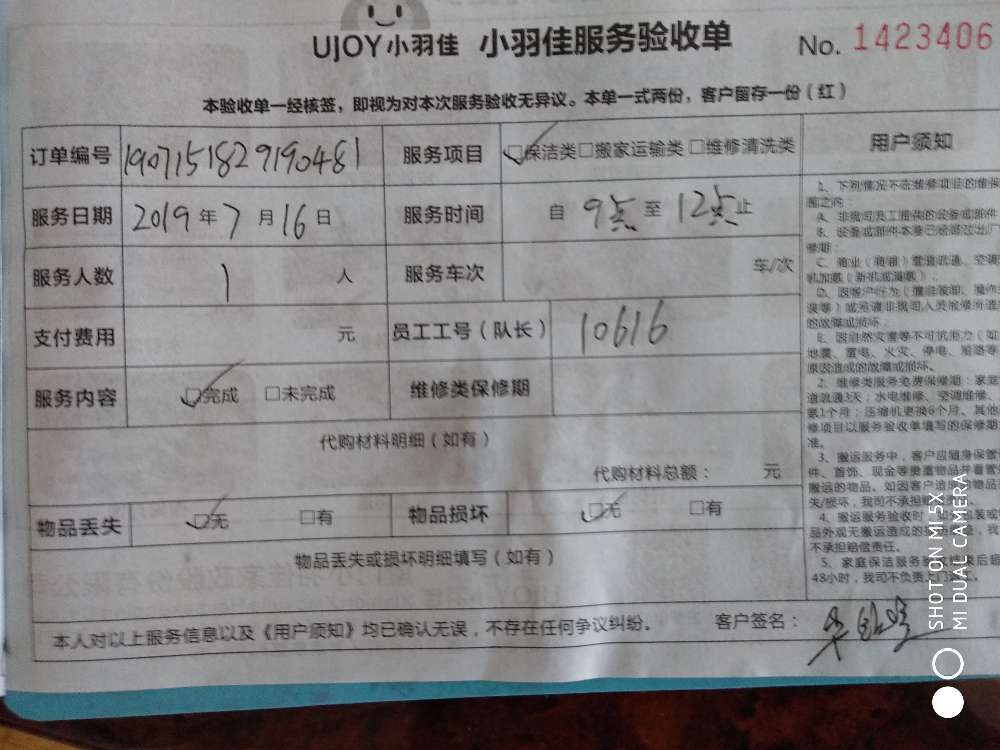 UJOY小羽佳 小羽佳服务验收单 No. 1423406
本验收单一经核签，即视为对本次服务验收无异议。本单一式两份，客户留存一份（红）
订单编号 1907151829190481 服务项目 ☑保洁类□搬家运输类□维修清洗类
服务日期 2019年7月16日 服务时间 自 9点 至 12点 止
服务人数 1 人 服务车次 车/次
支付费用 元 员工工号（队长） 10616
服务内容 ☑完成 □未完成 维修类保修期
代购材料明细（如有）
代购材料总额： 元
物品丢失 ☑无 □有 物品损坏 ☑无 □有
物品丢失或损坏明细填写（如有）
本人对以上服务信息以及《用户须知》均已确认无误，不存在任何争议纠纷。 客户签名：
用户须知
1、下列情况不在维修项目的维保
围之内：
A、非我司员工提供的设备或部件
B、设备或部件本身已经超过出厂
修期；
C、商业（商铺）管道疏通、空调
机加氨（新机或漏氨）；
的故障或损坏；
E、因自然灾害等不可抗拒力（如
地震、雷电、火灾、停电、短路等
原因造成的故障或损坏。
2、维修类服务免费保修期：家庭
道疏通3天；水电维修、空调维修、
氨1个月；压缩机更换6个月、其他
修项目以服务验收单填写的保修期
准。
3、搬运服务中，客户应随身保管
件、首饰、现金等贵重物品并看管
搬运的物品。如因客户造成的物品
失/损坏，我司不承担
4、搬运服务验收时
品外观无搬运造成的
不承担赔偿责任。
5、家庭保洁服务
48小时，我司不负责
SHOT ON MI 5X
MI DUAL CAMERA